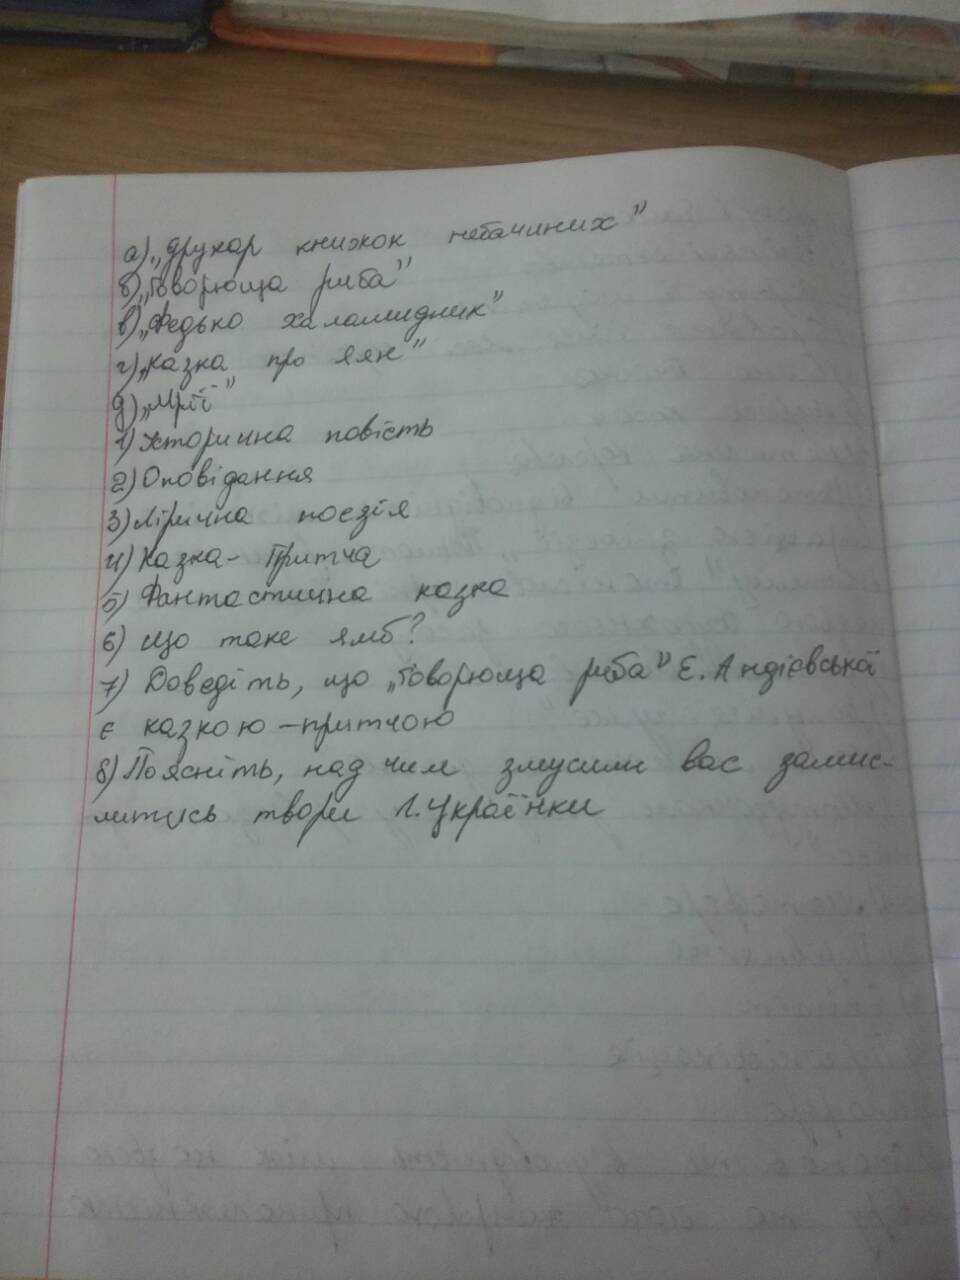 а) „Друкар книжок небачиних”
б) „Говорюща риба”
в) „Федько халамидник”
г) „Казка про Яян”
д) „Мрії”
1) Історична повість
2) Оповідання
3) Лірична поезія
4) Казка - Притча
5) Фантастична казка
6) Що таке ямб?
7) Доведіть, що „Говорюща риба” Е. Андієвської
є казкою - притчою
8) Поясніть, над чим змусили вас замис-
литись твори Л. Українки